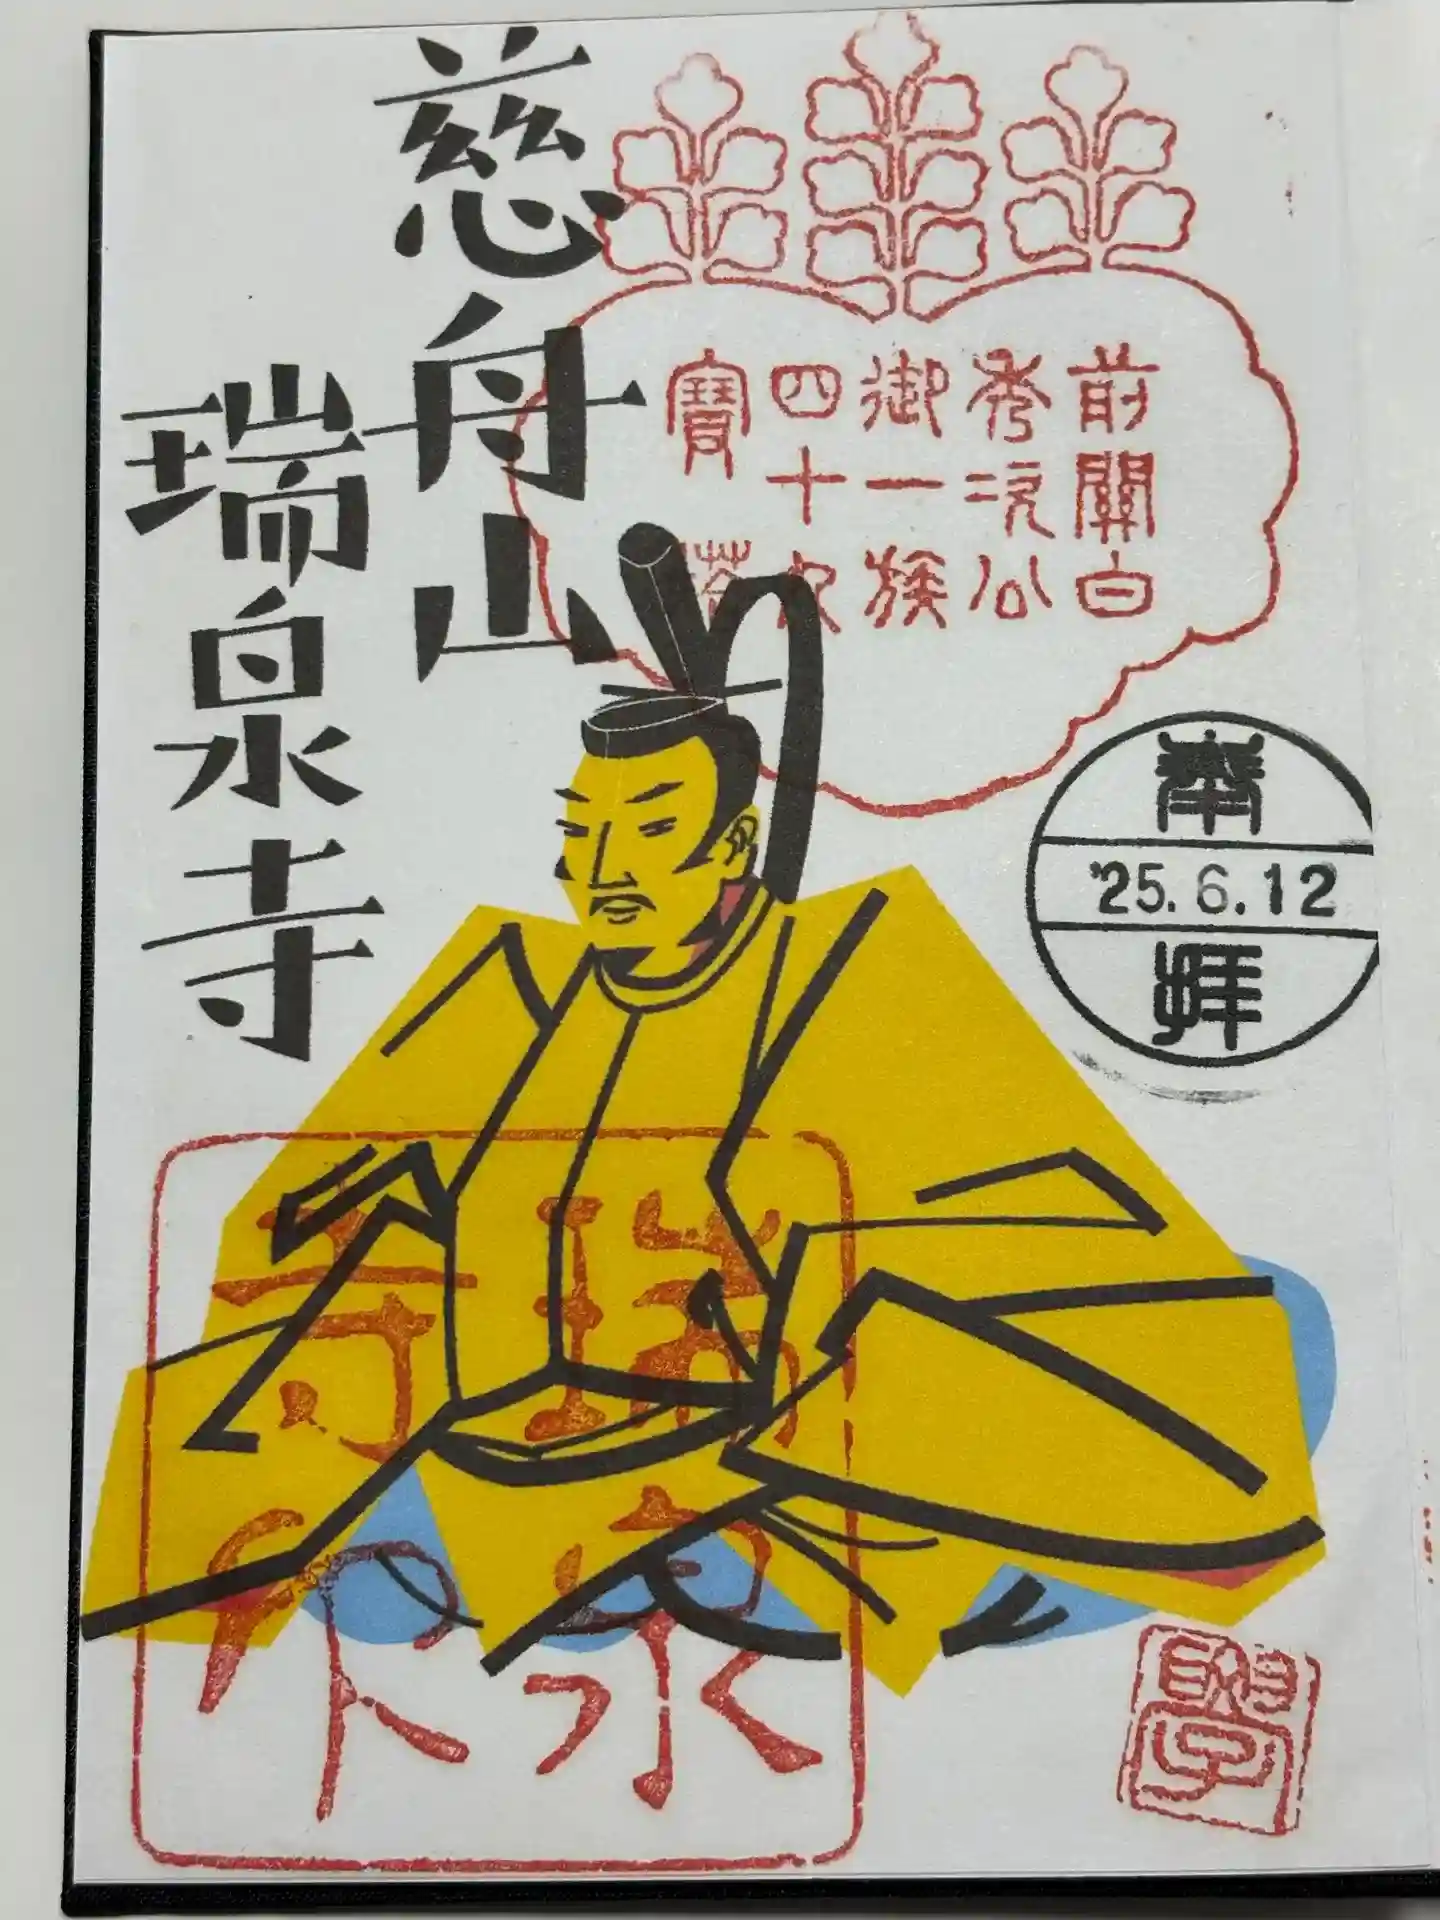 前關白
秀次公
御一族
四十
寶
奉
'25.6.12
拝
慈舟山
瑞泉寺
瑞泉
寺印